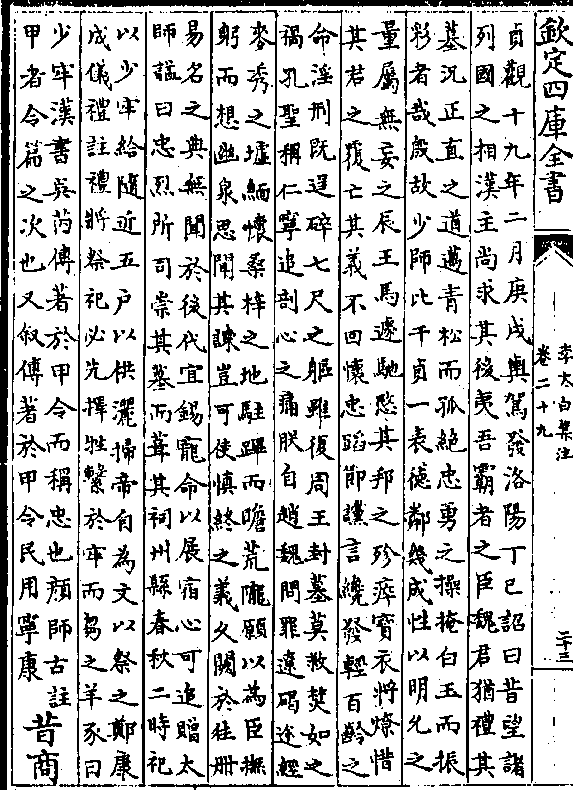 欽定四庫全書
李太白集注
卷二十九
二十三
貞觀十九年二月庚戌輿駕發洛陽丁巳詔曰昔望諸
列國之相漢主尚求其後夷吾霸者之臣魏君猶禮其
墓況正直之道邁青松而孤絶忠勇之操掩白玉而振
彩者哉殷故少師比干貞一表徳鄰幾成性以明允之
量屬無妄之辰玉馬遽馳愍其邦之殄瘁寳衣將燎惜
其君之覆亡其義不回懷忠蹈節讜言纔發輕百齡之
命淫刑既逞碎七尺之軀雖復周王封墓莫救焚如之
禍孔聖稱仁寧追剖心之痛朕自趙魏問罪遼碣途經
麥秀之墟緬懷桑梓之地駐蹕而瞻荒隴願以為臣撫
躬而想幽泉思聞其諫豈可使慎終之義久闕於往冊
易名之典無聞於後代宜錫寵命以展宿心可追贈太
師諡曰忠烈所司崇其墓而葺其祠州縣春秋二時祀
以少牢給隨近五户以供灑掃帝自為文以祭之鄭康
成儀禮註禮將祭祀必先擇牲繫於牢而芻之羊豕曰
少牢漢書吳芮傳著於甲令而稱忠也顔師古註
甲者令篇之次也又叙傳著於甲令民用寧康
昔商